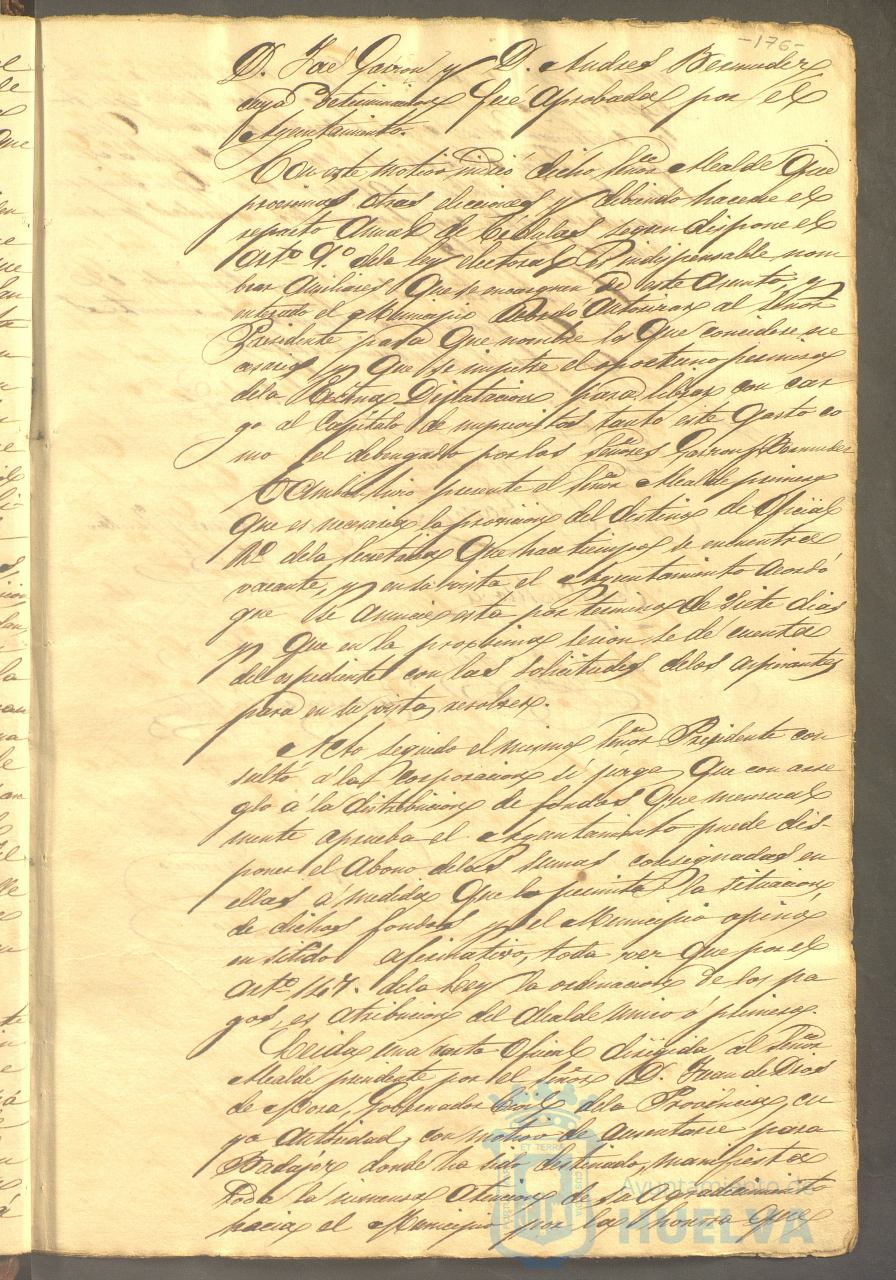 -176-
D. José Garzon y D. Andres Bermudez
cuya determinacion fué aprobada por el
Ayuntamiento.
Con este motivo indicó dicho Señor Alcalde que
proximas otras elecciones y debiendo hacerse el
reparto anual de Cédulas segun dispone el
arto. 9.º de la ley electoral es indispensable nom
brar auxiliares que se encarguen de este asunto, y
enterado el Municipio acordó autorizar al Señor
Presidente para que nombre los que considere ne
cesarios y que se impetre el oportuno permiso
de la Excma Diputacion para librar con car
go al capitulo de imprevistos tanto este gasto co
mo el debengado por los Señores Garzon y Bermudez
Tambien hizo presente el Señor Alcalde primero
que es necesaria la provision del destino de Oficial
de la Secretaria que hace tiempo se encuentra
vacante, y en su vista el Ayuntamiento acordó
que se anuncie esta por termino de siete dias
y que en la proxima sesion se dé cuenta
del espediente con las solicitudes de los aspirantes
para en su vista resolver.
Acto seguido el mismo Señor Presidente con
sultó á la Corporacion si juzga que con arre
glo á la distribucion de fondos que mensual
mente aprueba el Ayuntamiento puede dis-
poner el abono de las sumas consignadas en
ellas á medida que lo permita la situacion
de dichos fondos y el Municipio opinó
en sentido afirmativo, toda vez que por el
arto. 147. de la Ley la ordenacion de los pa
gos, es atribucion del Alcalde unico ó primero.
Leida una carta Oficial dirigida al Señor
Alcalde presidente por el Señor D. Juan de Dios
de Mora, Gobernador Civil de la Provincia, cu
ya autoridad, con motivo de ausentarse para
Badajoz donde ha sido destinado, manifiesta
toda la inmensa atencion de su agradecimiento
hacia el Municipio por la honra que
Ayuntamiento de
HUELVA